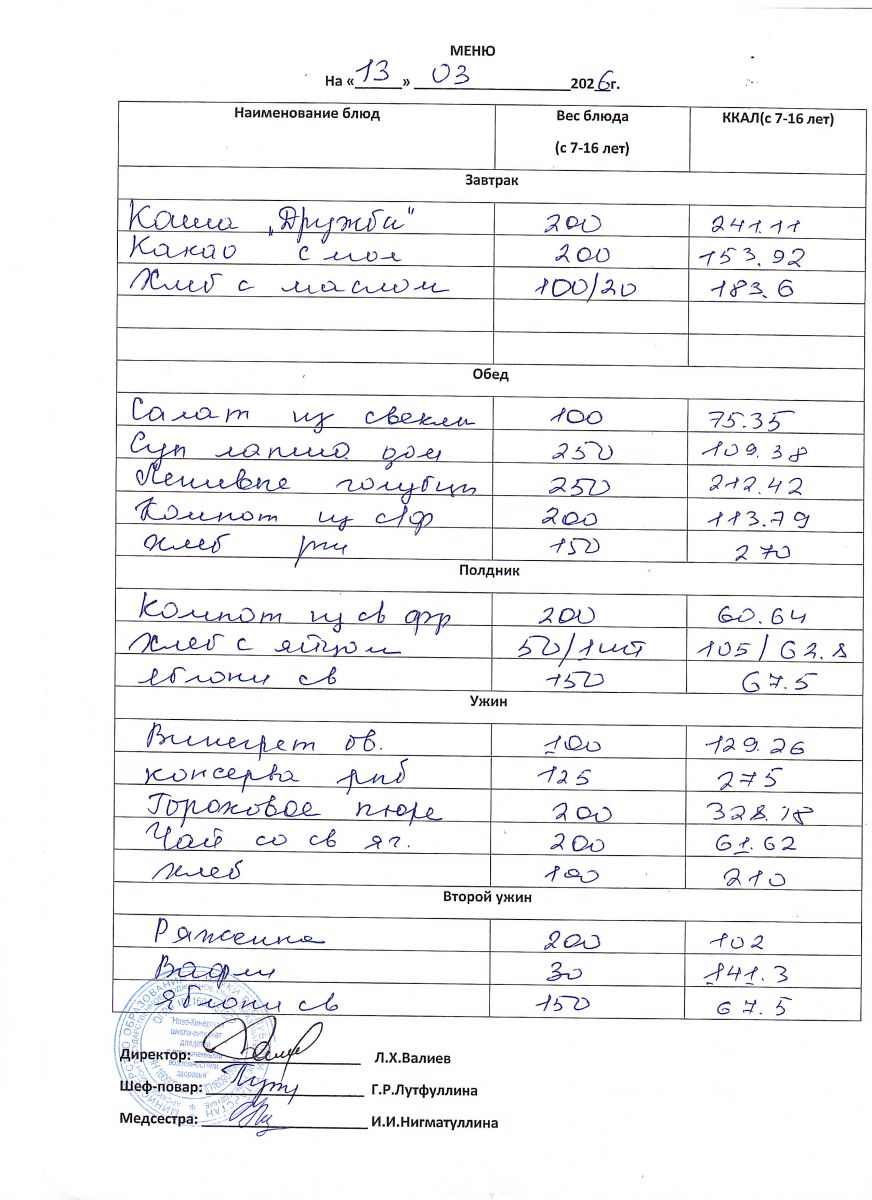 МЕНЮ
На «13» 03 2026г.
Наименование блюд Вес блюда (с 7-16 лет) ККАЛ(с 7-16 лет)
Завтрак
Каша „Дружба" 200 241.11
Какао с мол 200 153.92
Хлеб с маслом 100/20 183.6
Обед
Салат из свеклы 100 75.35
Суп лапша дом 250 109.38
Ленивые голубцы 250 212.42
Компот из с/ф 200 113.79
Хлеб рж 150 270
Полдник
Компот из св фр 200 60.64
Хлеб с яйцом 50/1шт 105/62.8
яблоки св 150 67.5
Ужин
Винегрет ов. 100 129.26
консерва рыб 125 275
Гороховое пюре 200 328.18
Чай со св яг. 200 61.62
хлеб 100 210
Второй ужин
Ряженка 200 102
Вафли 30 141.3
яблоки св 150 67.5
"Ново-Кинерская
школа-интернат
для детей
с ограниченными
возможностями
здоровья"
Директор: Л.Х.Валиев
Шеф-повар: Г.Р.Лутфуллина
Медсестра: И.И.Нигматуллина